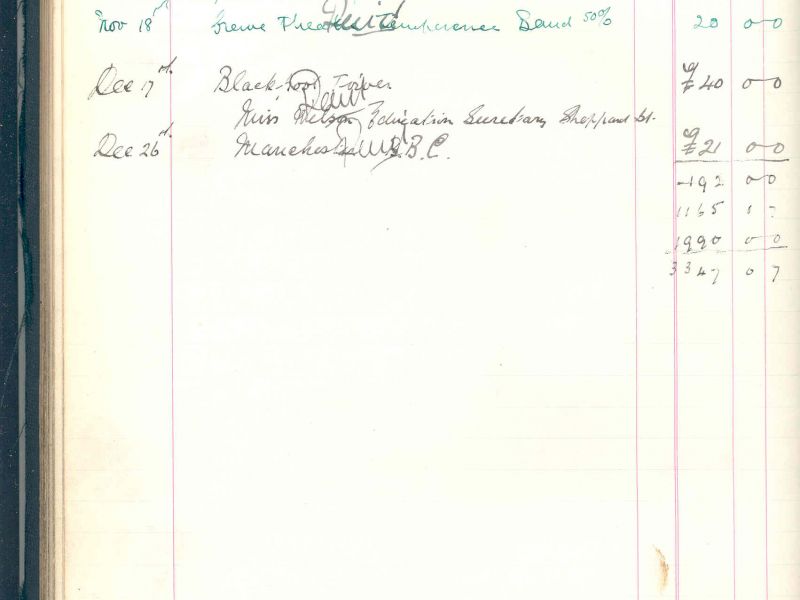 Nov 18th Crewe Theatre Temperance Band 50% 20 0 0
Dec 17th Blackpool Tower £40 0 0
Paid
Miss Nelson Education Secretary Sheppard St.
Dec 26th Manchester B.B.C. £21 0 0
192 0 0
1165
1990 0 0
3347 0 7